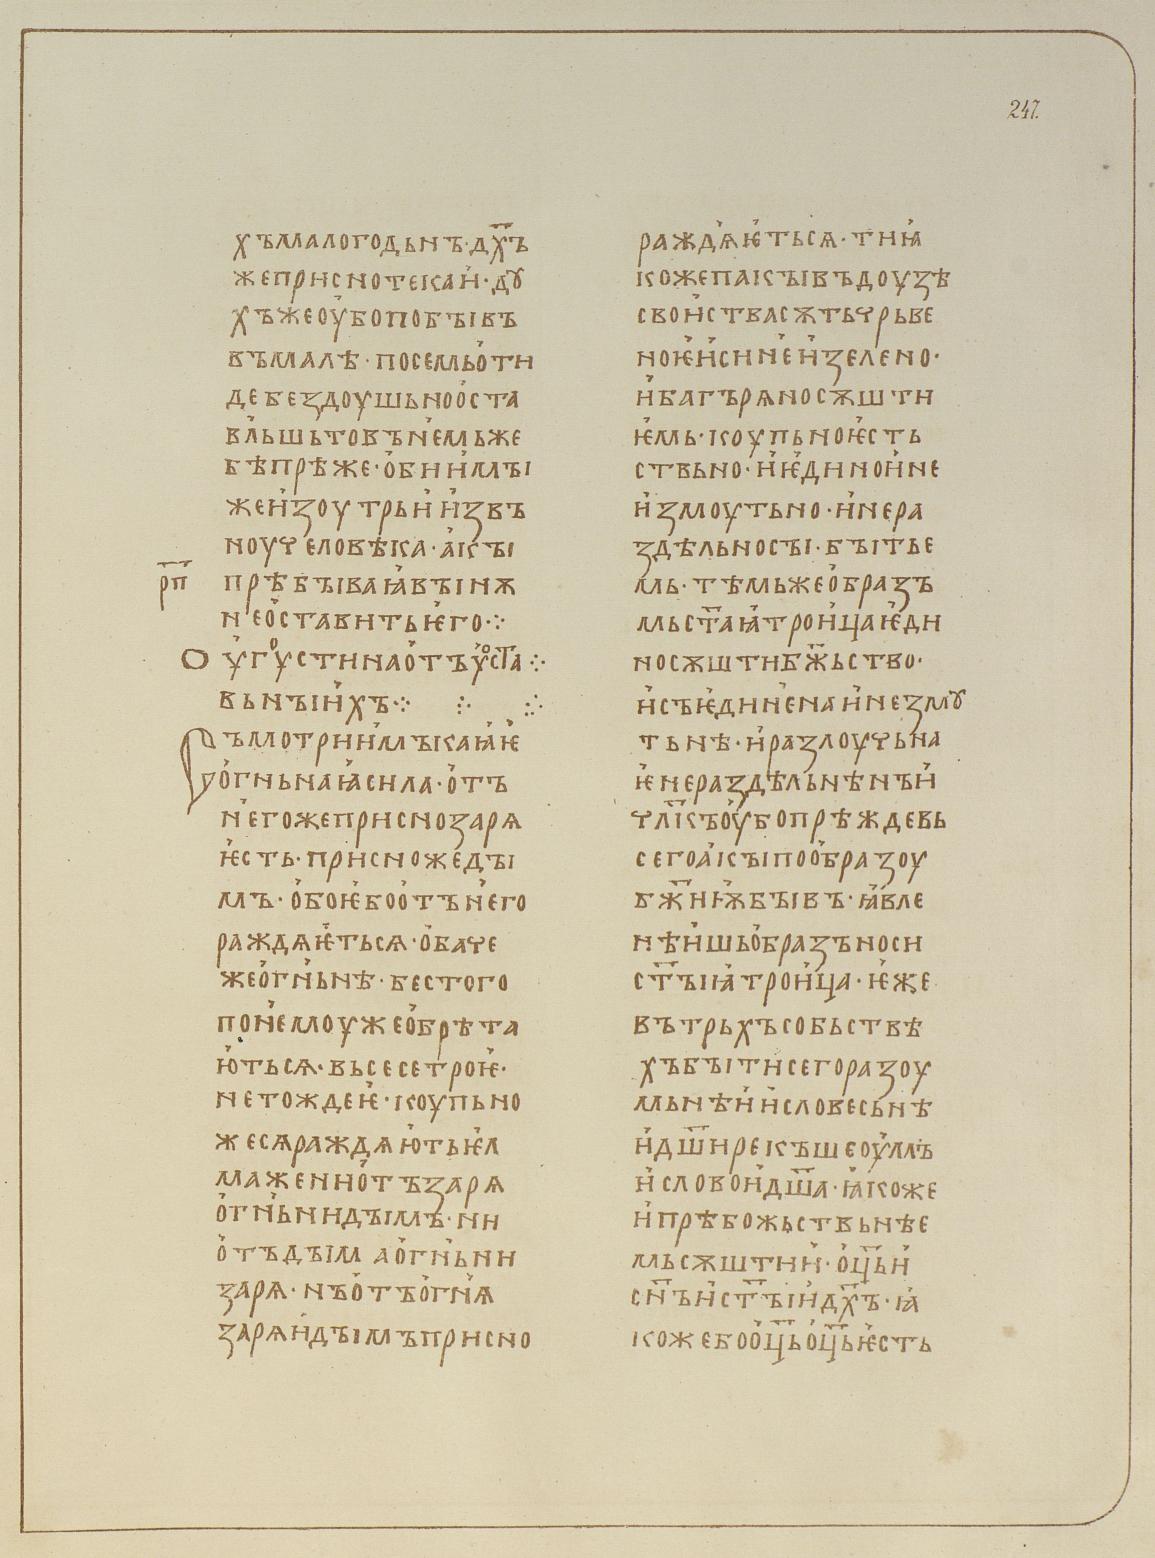 247.
хъмалогодьнъ·дх҃ъ
жеприснотекаи·дꙋ
хъжеоубопобывъ
въмалѣ·посемьоти
дебездоушьнооста
вльшьтовънемьже
бѣпрѣже·обиимъі
жеизоутрьиизвъ
ноучеловѣка·акъі
рп҃ прѣбъіваꙗвъінѫ
неоставитьѥго·:·
Оугоустинаотъоуста·:·
вьнъіихъ·:· ·:· ·:·
Съмотриимъікаꙗѥ
огньнаꙗсила·отъ
негожеприснозарѧ
ѥсть·присножедъі
мъ·обоѥбоотънего
раждѧѥтьсѧ·обаче
жеогньнѣ·бестого
понемоужеобрѣта
ютьсѧ·вьсесетроѥ·
нетождеѥ·коупьно
жесѧраждѧютьѥл
мажениотъзарѧ
огньнидъімъ·ни
отъдъімаогньни
зарѧ·нъотъогнѧ
зарѧидъімъприсно
раждѧѥтьсѧ·тиꙗ
кожепакъівъдоузѣ
своиствасѫтьчрьве
ноѥисинеизелено·
ибагърѧносѫшти
ѥмь·коупьноѥсть
ствьно·иѥдиноине
измоутьно·инера
здѣльносъі·бъітье
мь·тѣмьжеобразъ
мьст҃аꙗтроицаѥди
носѫштибж҃ьство·
исъѥдиненаинезмꙋ
тьнѣ·иразлоучьна
ѥнераздѣльнѣнъи
чл҃къоубопрѣждевь
сегоакъіпообразоу
бж҃июбъівъ·ꙗвле
нѣишьобразъноси
ст҃ъіꙗтроица·ѥже
вътрьхъсобьствѣ
хъбъітисегоразоу
мьнѣиисловесьнѣ
идш҃ирекъшеоумъ
исловоидш҃а·ꙗкоже
ипрѣбожьствьнѣе
мьсѫштии·оц҃ьи
сн҃ъист҃ъіидх҃ъ·ꙗ
кожебооц҃ьоц҃ьѥсть